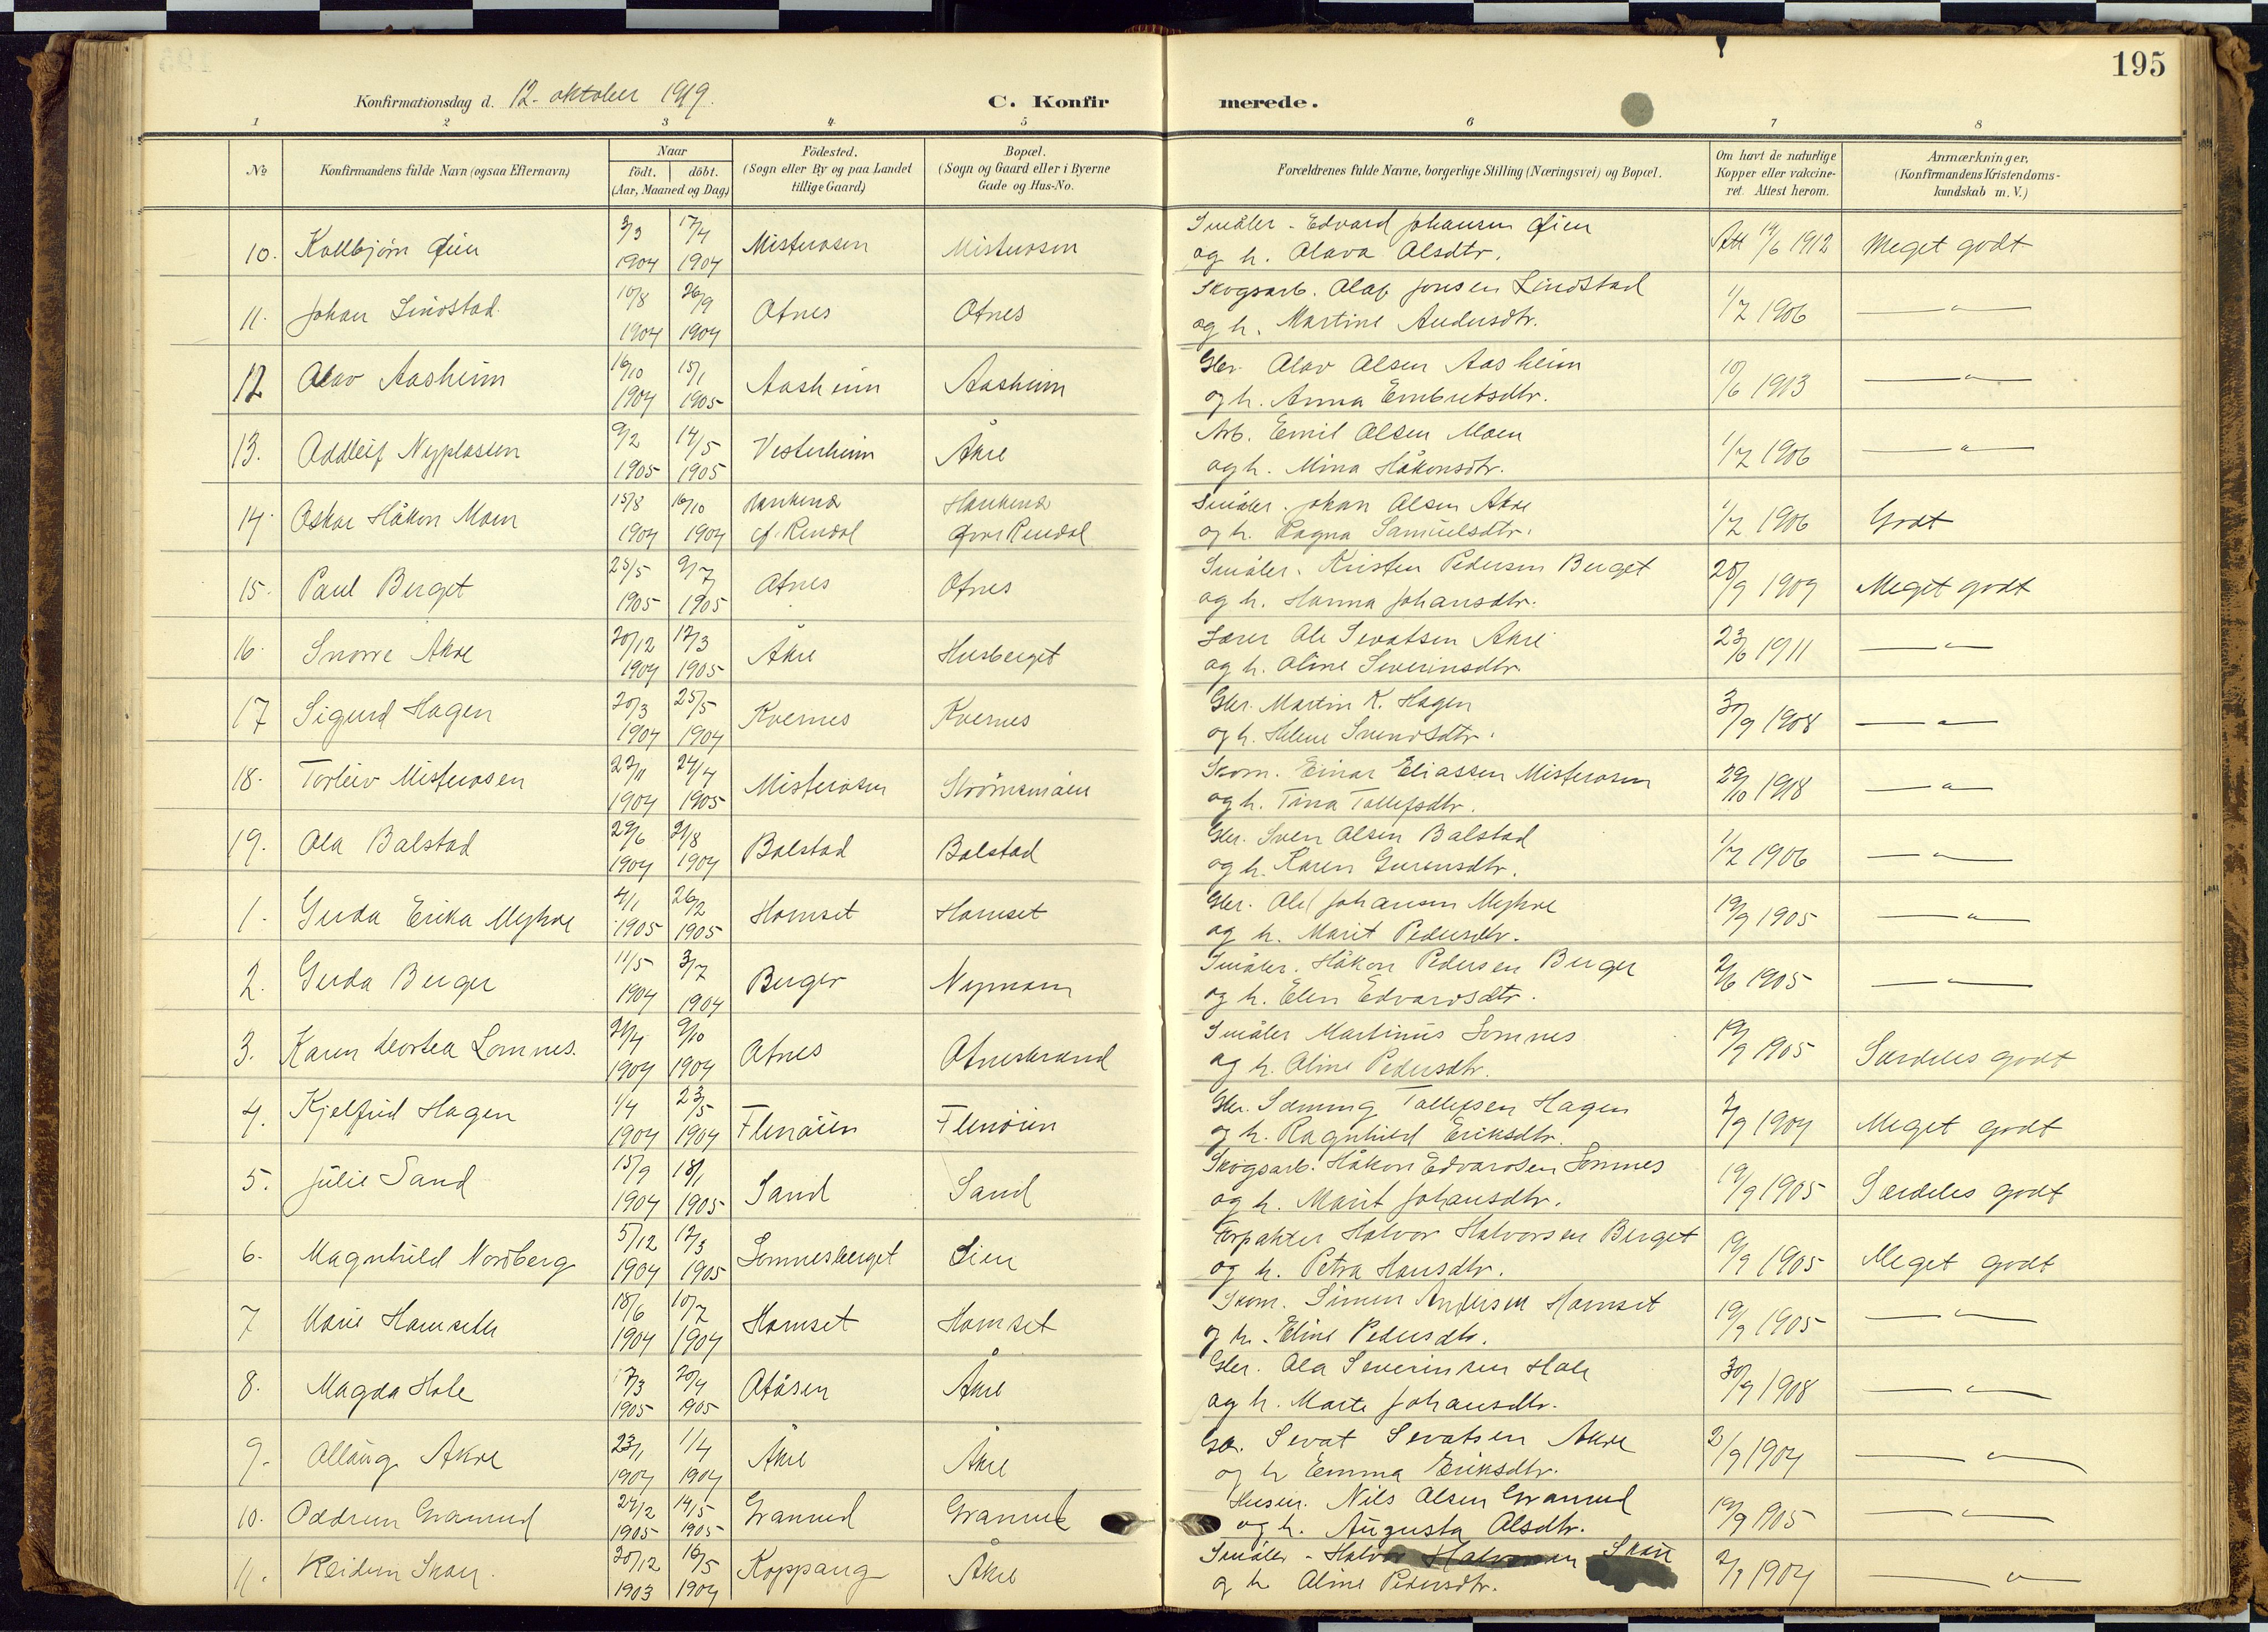 195
Konfirmationsdag d. 12. oktober 1919.
C. Konfirmerede.
1 2 3 4 5 6 7 8
No
Konfirmandens fulde Navn (ogsaa Efternavn)
Naar
födt. döbt.
(Aar, Maaned og Dag)
Födested.
(Sogn eller By og paa Landet
tillige Gaard)
Bopæl.
(Sogn og Gaard eller i Byerne
Gade og Hus-No.
Forældrenes fulde Navne, borgerlige Stilling (Næringsvei) og Bopæl.
Om havt de naturlige
Kopper eller vakcine-
ret. Attest herom.
Anmærkninger,
(Konfirmandens Kristendoms-
kundskab m. V.)
10. Kolbjörn Öien 3/3 1904 17/4 1904 Misterosen Misterosen Småbr. Edvard Johansen Öien
og h. Olava Olsdtr. Att 14/6 1912 Meget godt
11. Johan Lindstad 10/8 1904 26/9 1904 Otnes Otnes Skogsarb. Olaf Jonsen Lindstad
og h. Martine Andersdtr. 1/7 1906 — " —
12 Olav Aasheim 16/10 1904 15/1 1905 Aasheim Aasheim Gbr. Olav Olsen Aasheim
og h. Anna Embretsdtr. 10/6 1913 — " —
13. Oddleif Nyplassen 9/2 1905 14/5 1905 Vesterheim Åkre Arb. Emil Olsen Moen
og h. Mina Håkonsdtr. 1/7 1906 — " —
14. Oskar Håkon Moen 15/8 1904 16/10 1904 Haukend
öf. Rendal Haukend
Övre Rendal Småbr. Johan Olsen Akre
og h. Ragna Samuelsdtr. 1/7 1906 Godt
15. Paul Berget 25/5 1905 9/7 1905 Otnes Otnes Småbr. Kristen Pedersen Berget
og h. Hanna Johansdtr. 28/9 1909 Meget godt
16. Snorre Akre 20/12 1904 12/3 1905 Åkre Husberget Lærer Ole Sevatsen Akre
og h. Oline Severinsdtr. 23/6 1911 — " —
17 Sigurd Hagen 20/3 1904 25/5 1904 Kvernes Kvernes Gbr. Martin K. Hagen
og h. Helene Svendsdtr. 30/9 1908 — " —
18. Torleiv Misterosen 22/11 1904 24/4 1905 Misterosen Strömsmoen Skom. Einar Eliassen Misterosen
og h. Tina Tollefsdtr. 29/10 1918 — " —
19. Ola Balstad 29/6 1904 21/8 1904 Balstad Balstad Gbr. Sven Olsen Balstad
og h. Karen 1/7 1906 — " —
1. Gerda Erika Myhre 4/1 1905 26/2 1905 Hornset Hornset Gbr. Johansen Myhre
og h. Marit Pedersdtr. 19/9 1905 — " —
2. Gerda Berger 11/5 1904 3/7 1904 Berger Nymoen Småbr. Håkon Pedersen Berger
og h. Elen Edvardsdtr. 2/6 1905 — " —
3. Karen Dortea Lomnes. 21/4 1904 9/10 1904 Otnes Otnesstrand Småbr Martinus Lomnes
og h. Oline Pedersdtr. 19/9 1905 Særdeles godt
4. Kjelfrid Hagen 1/4 1904 23/5 1904 Flenöien Flenöien Gbr. Sæming Tollefsen Hagen
og h. Ragnhild Eriksdtr. 2/9 1904 Meget godt
5. Julie Sand 15/9 1904 15/1 1905 Sand Sand Skogsarb. Håkon Edvardsen Lomnes
og h. Marit Johansdtr. 19/9 1905 Særdeles godt
6. Magnhild Nordberg 5/12 1904 12/3 1905 Lomnesberget Lien Forpakter Halvor Halvorsen Berget
og h. Petra Hansdtr. 19/9 1905 Meget godt
7 Marie Hornseth 18/6 1904 10/7 1904 Hornset Hornset Skom. Simen Andersen Hornset
og h. Eline Pedersdtr. 19/9 1905 — " —
8. Magda Hole 17/3 1905 20/4 1905 Otåsen Åkre Gbr. Ola Severinsen Hole
og h. Marte Johansdtr. 30/9 1908 — " —
9. Ollaug Akre 23/1 1904 1/4 1904 Åkre Åkre Gbr. Sevat Sevatsen Akre
og h Emma Eriksdtr. 2/9 1904 — " —
10. Oddrun Granrud 24/2 1905 14/5 1905 Granrud Granrud Nils Olsen Granrud
og h. Augusta Olsdtr. 19/9 1905 — " —
11. Reidun Skar. 20/12 1903 16/5 1904 Koppang Åkre Småbr. Halvor Halvorsen
og h Oline Pedersdtr. 2/9 1904 — " —